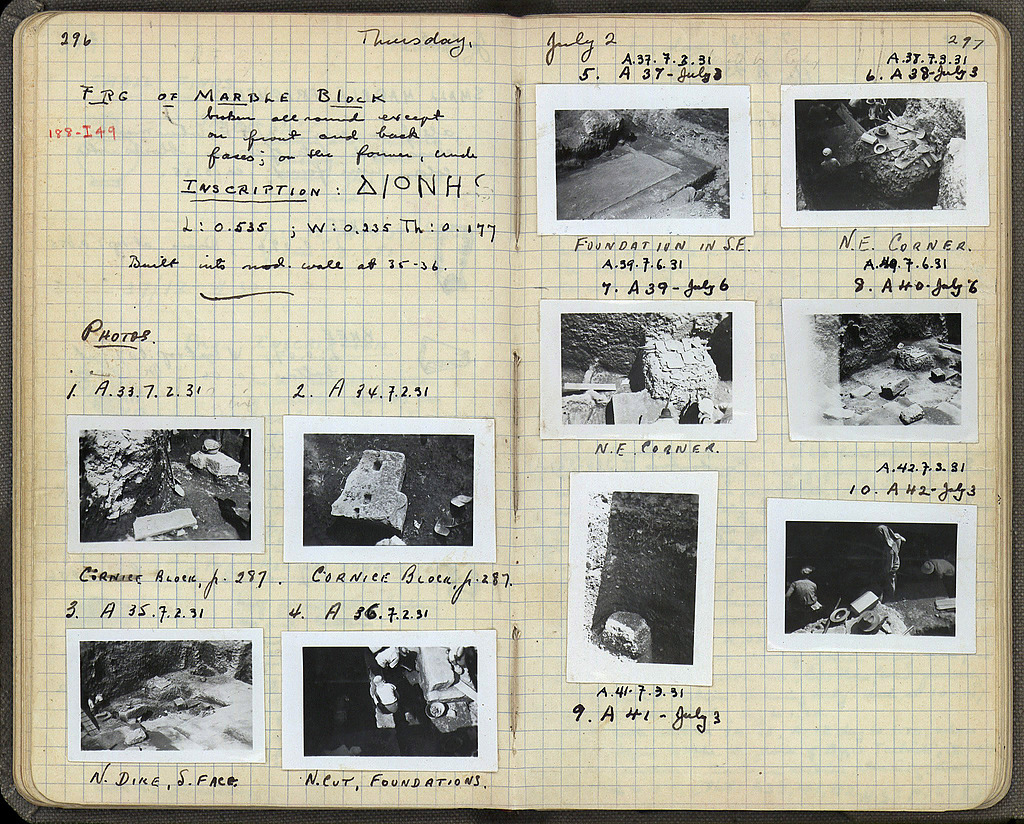 296
Thursday,
FRG OF MARBLE BLOCK
188-I49
broken all round except
on front and back
faces; on the former, crude
INSCRIPTION: ΔΙΟΝΗ
L: 0.535 ; W: 0.235 Th: 0.177
Built into mod. wall at 35-36.
PHOTOS.
1. A.33.7.2.31
2. A 34.7.2.31
CORNICE BLOCK, p. 287.
CORNICE BLOCK, p. 287.
3. A 35.7.2.31
4. A 36.7.2.31
N. DIKE, S. FACE.
N. CUT, FOUNDATIONS.
July 2
297
A.37.7.3.31
5. A 37-July 3
A.38.7.3.31
6. A 38-July 3
FOUNDATION IN S.E.
N.E. CORNER.
A.39.7.6.31
7. A 39-July 6
A.40.7.6.31
8. A 40-July 6
N.E. CORNER.
A.42.7.3.31
10. A 42-July 3
A.41.7.3.31
9. A 41-July 3